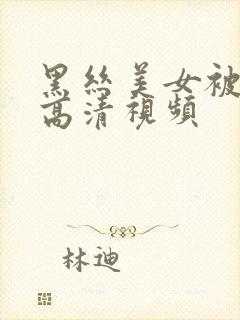 黑丝美女被
高清視頻
林迪